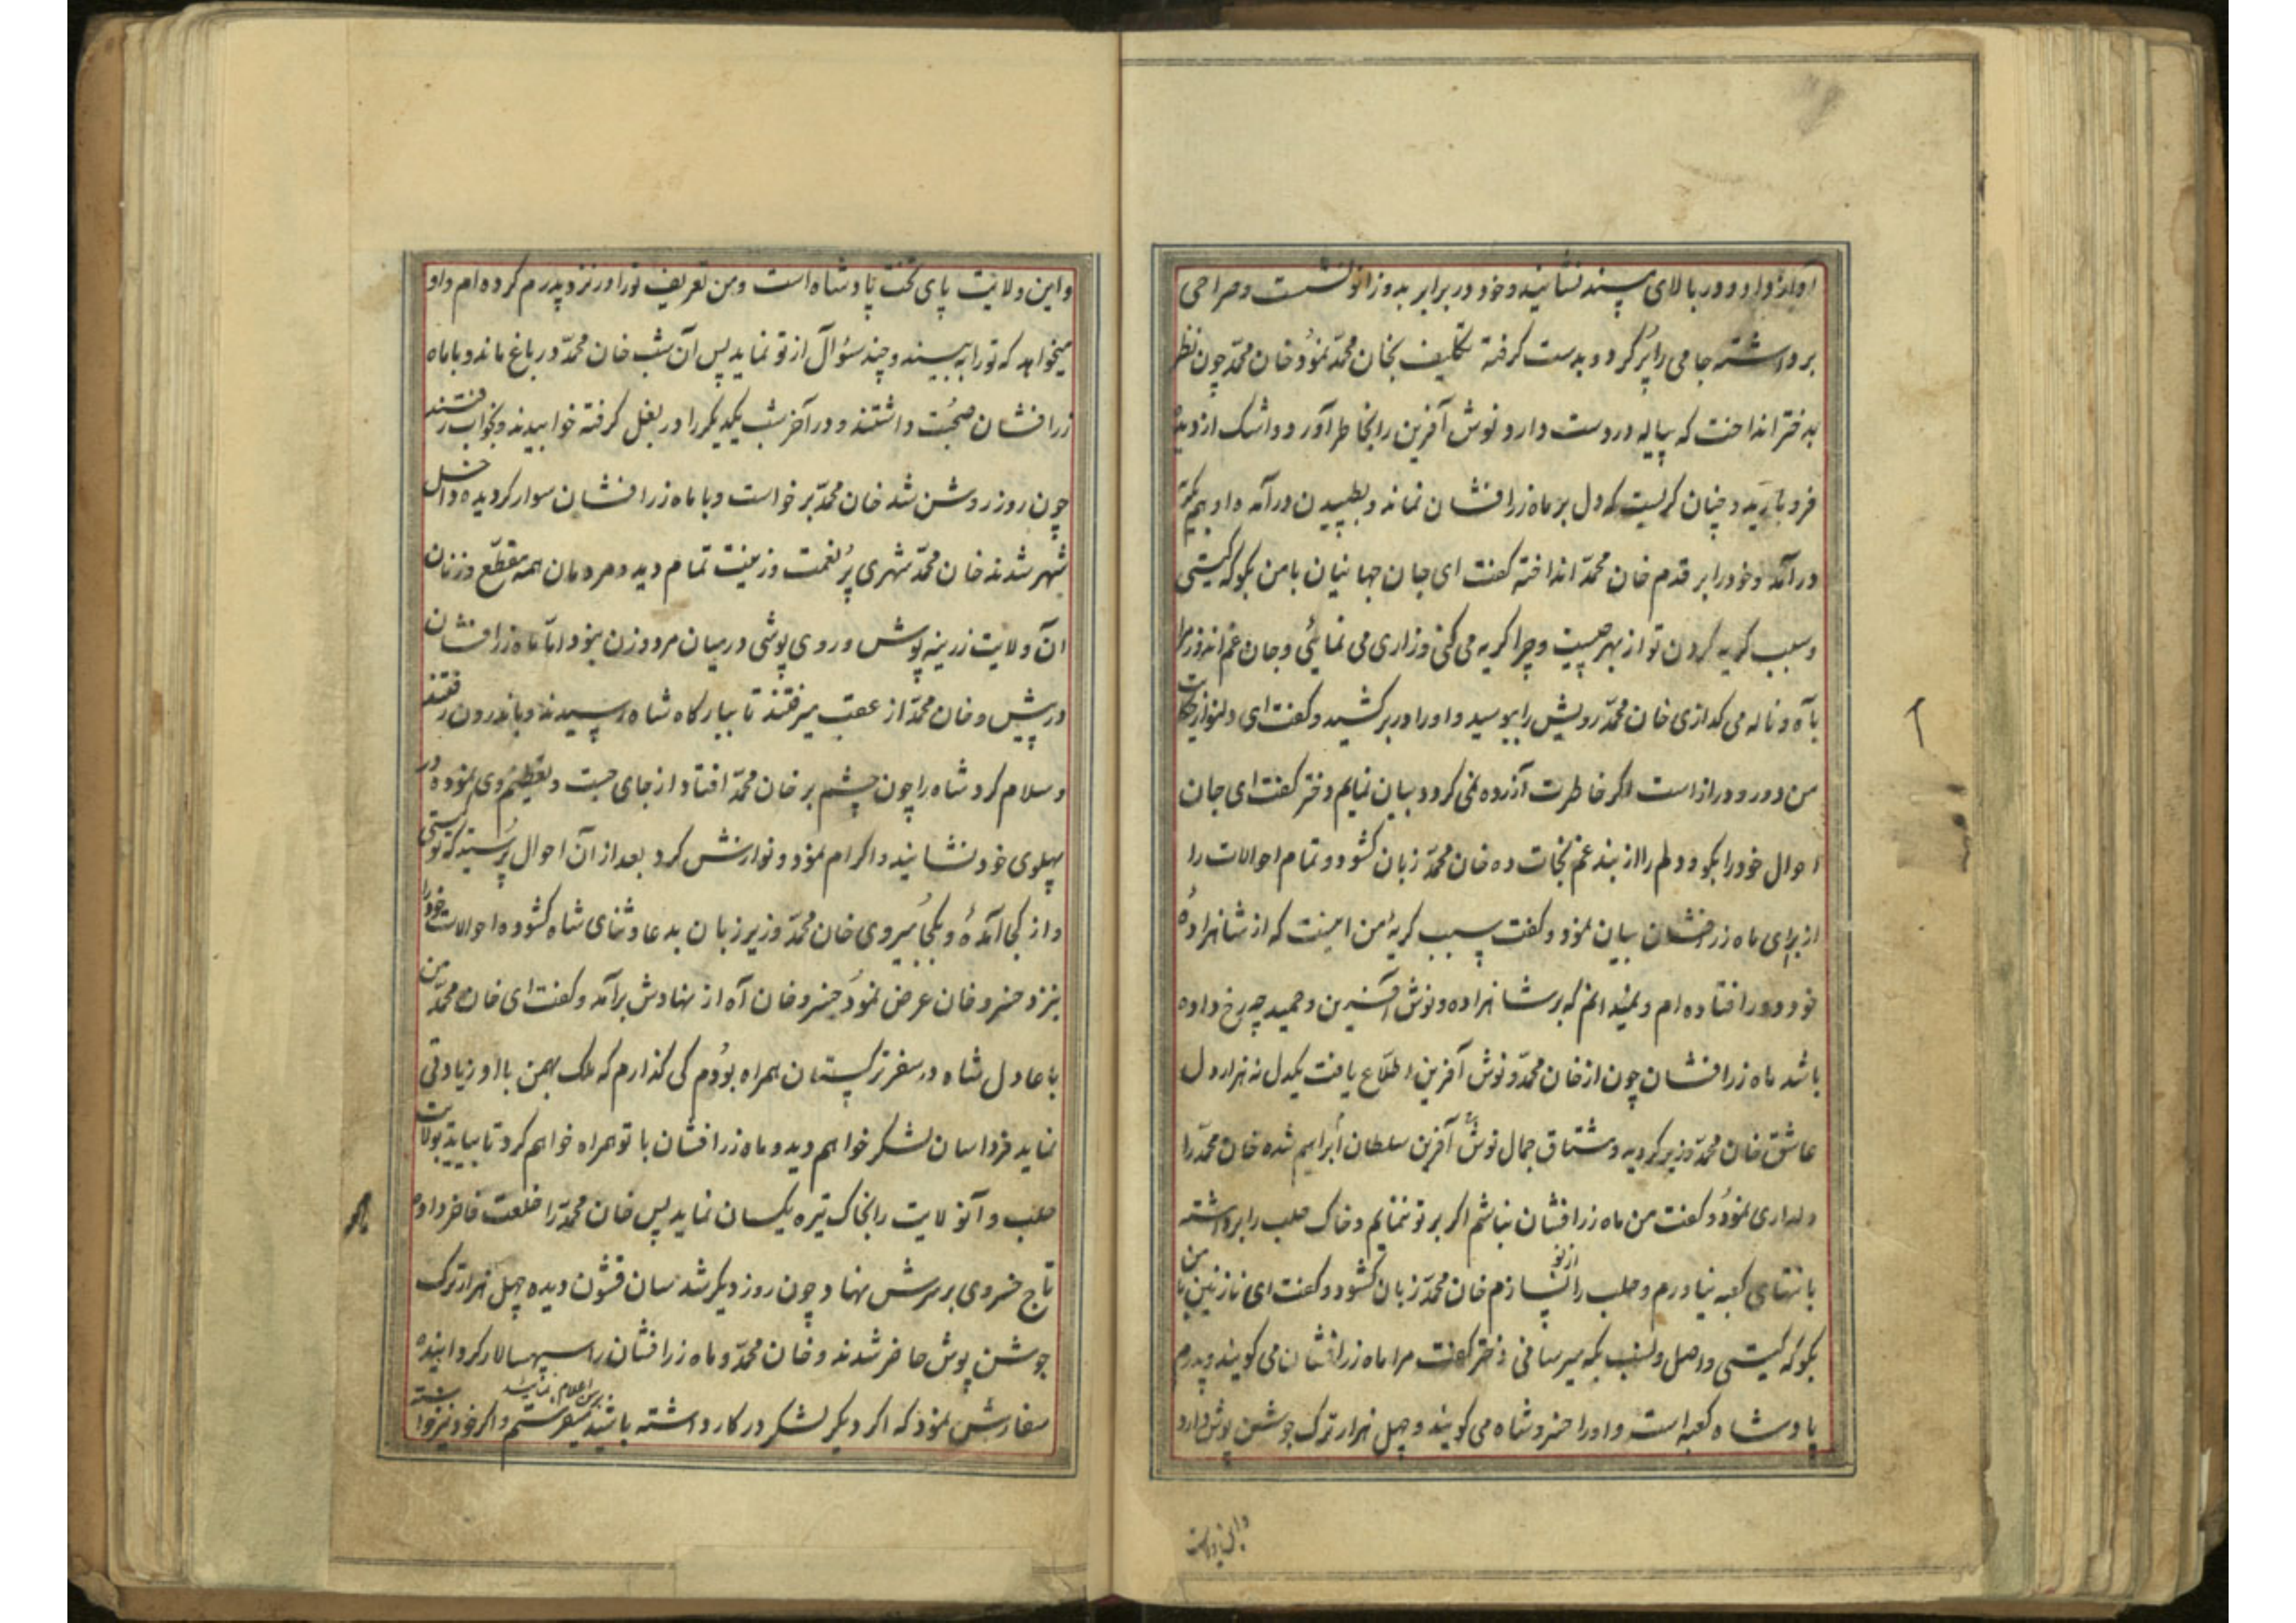 آواز داد و در بالای مسند نشانید و خود در برابر بدو زانو نشست و صراحی
برداشته جامی را پر کرد و بدست گرفته تکلیف بخان محمّد نمود خان محمّد چون نظر
بدختر انداخت که پیاله در دست دارد نوش آفرین را بخاطر آورد و اشک از دیده
فرو بارید و چنان گریست که دل بر ماه زرافشان نماند و بطپیدن درآمد و او بهم
درآمد و خود را بر قدم خان محمّد انداخته گفت ای جان جهانیان با من بگو که کیستی
و سبب گریه کردن تو از بهر چیست و چرا گریه می کنی و زاری می نمائی و جان غم اندوز مرا
بآه و ناله می گدازی خان محمّد رویش را ببوسید و او را در بر کشید و گفت ای دلنواز حکایت
من دور و دراز است اگر خاطرت آزرده نمی گردد بیان نمایم دختر گفت ای جان
احوال خود را بگو و دلم را از بند غم نجات ده خان محمّد زبان گشود و تمام احوالات را
از برای ماه زرافشان بیان نمود و گفت سبب گریهٔ من اینست که از شاهزادهٔ
خود دور افتاده ام و نمیدانم که بر شاهزاده و نوش آفرین و حمید چه رخ داده
باشد ماه زرافشان چون از خان محمّد و نوش آفرین اطلاع یافت یکدل نه هزار دل
عاشق خان محمّد وزیر گردید و مشتاق جمال نوش آفرین سلطان ابراهیم شده خان محمّد را
دلداری نمود و گفت من ماه زرافشان نباشم اگر بر تو ننمایم و خاک حلب را برداشته
بانتهای کعبه نیاورم و حلب را از نو نسازم خان محمّد زبان گشود و گفت ای نازنین با من
بگو که کیستی و اصل و نسب بکه میرسانی دختر گفت مرا ماه زرافشان می گویند و پدرم
پادشاه کعبه است و او را خسرو شاه می گویند و چهل هزار ترک جوشن پوش دارد
و این ولایت
و این ولایت پای تخت پادشاه است و من تعریف تو را در نزد پدرم کرده ام و او
میخواهد که تو را به بیند و چند سؤال از تو نماید پس آن شب خان محمّد در باغ ماند و با ماه
زرافشان صحبت داشتند و در آخر شب یکدیگر را در بغل گرفته خوابیدند و بخواب رفتند
چون روز روشن شد خان محمّد برخواست و با ماه زرافشان سوار گردیده داخل
شهر شدند خان محمّد شهری پر نعمت و زینت تمام دید و مردمان همه مقطّع و زنان
آن ولایت زرینه پوش و روی پوشی در میان مرد و زن نبود اما ماه زرافشان
در پیش و خان محمّد از عقب میرفتند تا ببارگاه شاه رسیدند و باندرون رفتند
و سلام کرد شاه را چون چشم بر خان محمّد افتاد از جای جست و تعظیم وی نموده در
پهلوی خود نشانید و اکرام نمود و نوازش کرد بعد از آن احوال پرسید که تو کیستی
و از کجا آمدهٔ و بکجا میروی خان محمّد وزیر زبان بدعا و ثنای شاه گشوده احوالات خود را
بنزد خسرو خان عرض نمود خسرو خان آه از نهادش برآمد و گفت ای خان محمّد من
با عادل شاه در سفر ترکستان همراه بودم کی گذارم که ملک بهمن با او زیادتی
نماید فردا سان لشکر خواهم دید و ماه زرافشان با تو همراه خواهم کرد تا بیاید بولایت
حلب و آنولایت را بخاک تیره یکسان نماید پس خان محمّد را خلعت فاخر داد و
تاج خسروی بر سرش نهاد چون روز دیگر شد سان قشون دیده چهل هزار ترک
جوشن پوش حاضر شدند و خان محمّد و ماه زرافشان را سپهسالار گردانیده
سفارش نمود که اگر دیگر لشکر در کار داشته باشید بمن اعلام نمائید میفرستم و اگر خود نیز خواسته